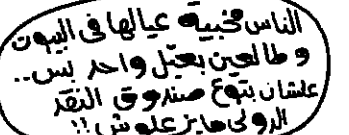 الناس مخبيه عيالها فى البيوت
و طالعين بعيّل واحد بس..
علشان بتوع صندوق النقد
الدولى مايزعلوش !!